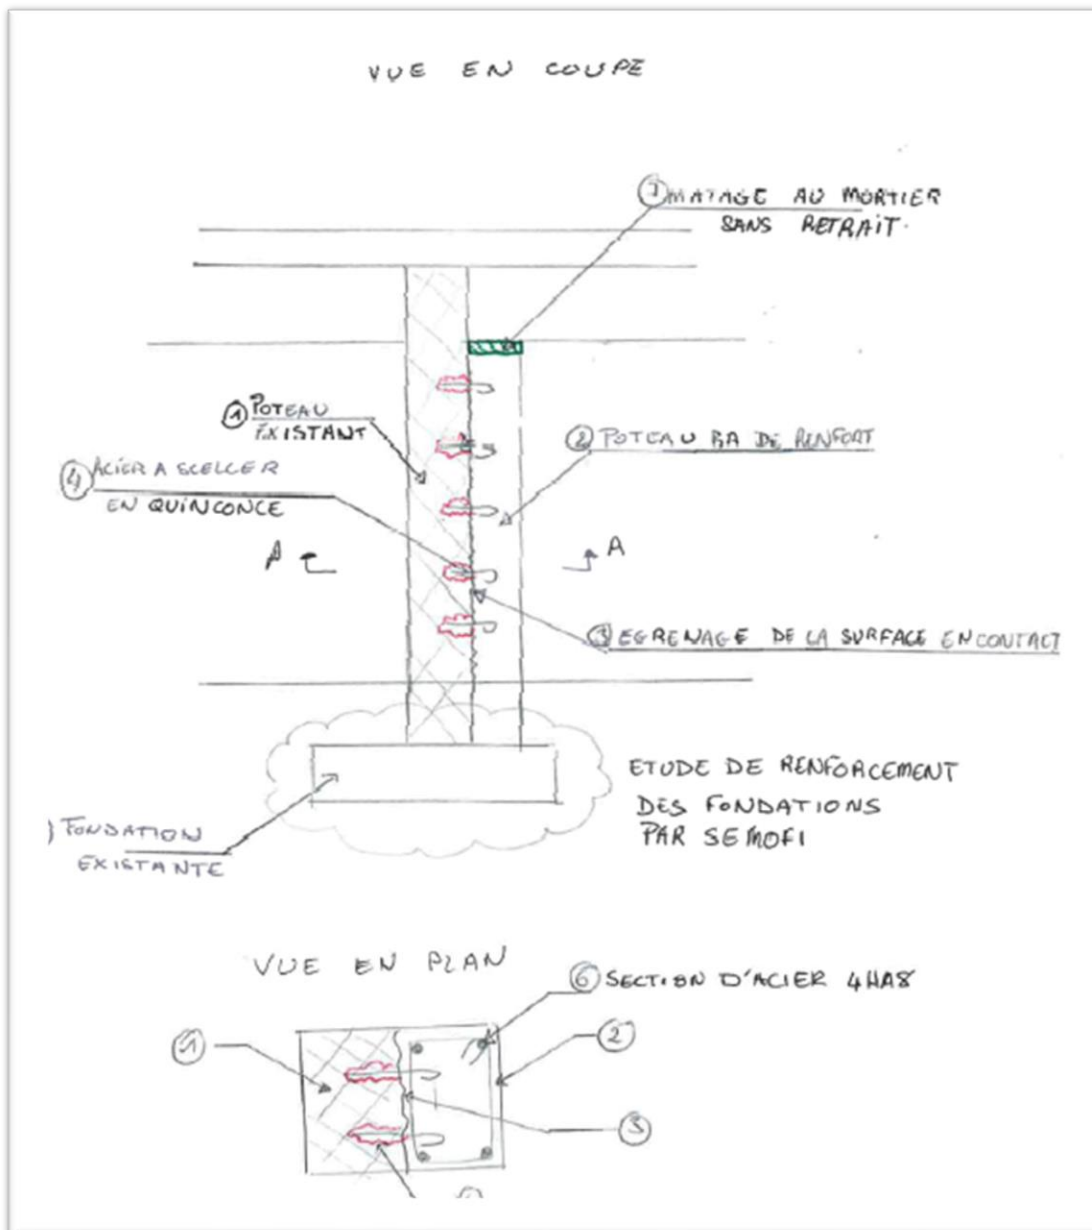 VUE EN COUPE
⑦ MATAGE AU MORTIER
SANS RETRAIT.
① POTEAU
EXISTANT
② POTEAU BA DE RENFORT
④ ACIER A SCELLER
EN QUINCONCE
A
A
③ EGRENAGE DE LA SURFACE EN CONTACT
ETUDE DE RENFORCEMENT
DES FONDATIONS
PAR SEMOFI
) FONDATION
EXISTANTE
VUE EN PLAN
⑥ SECTION D'ACIER 4HA8
①
②
③